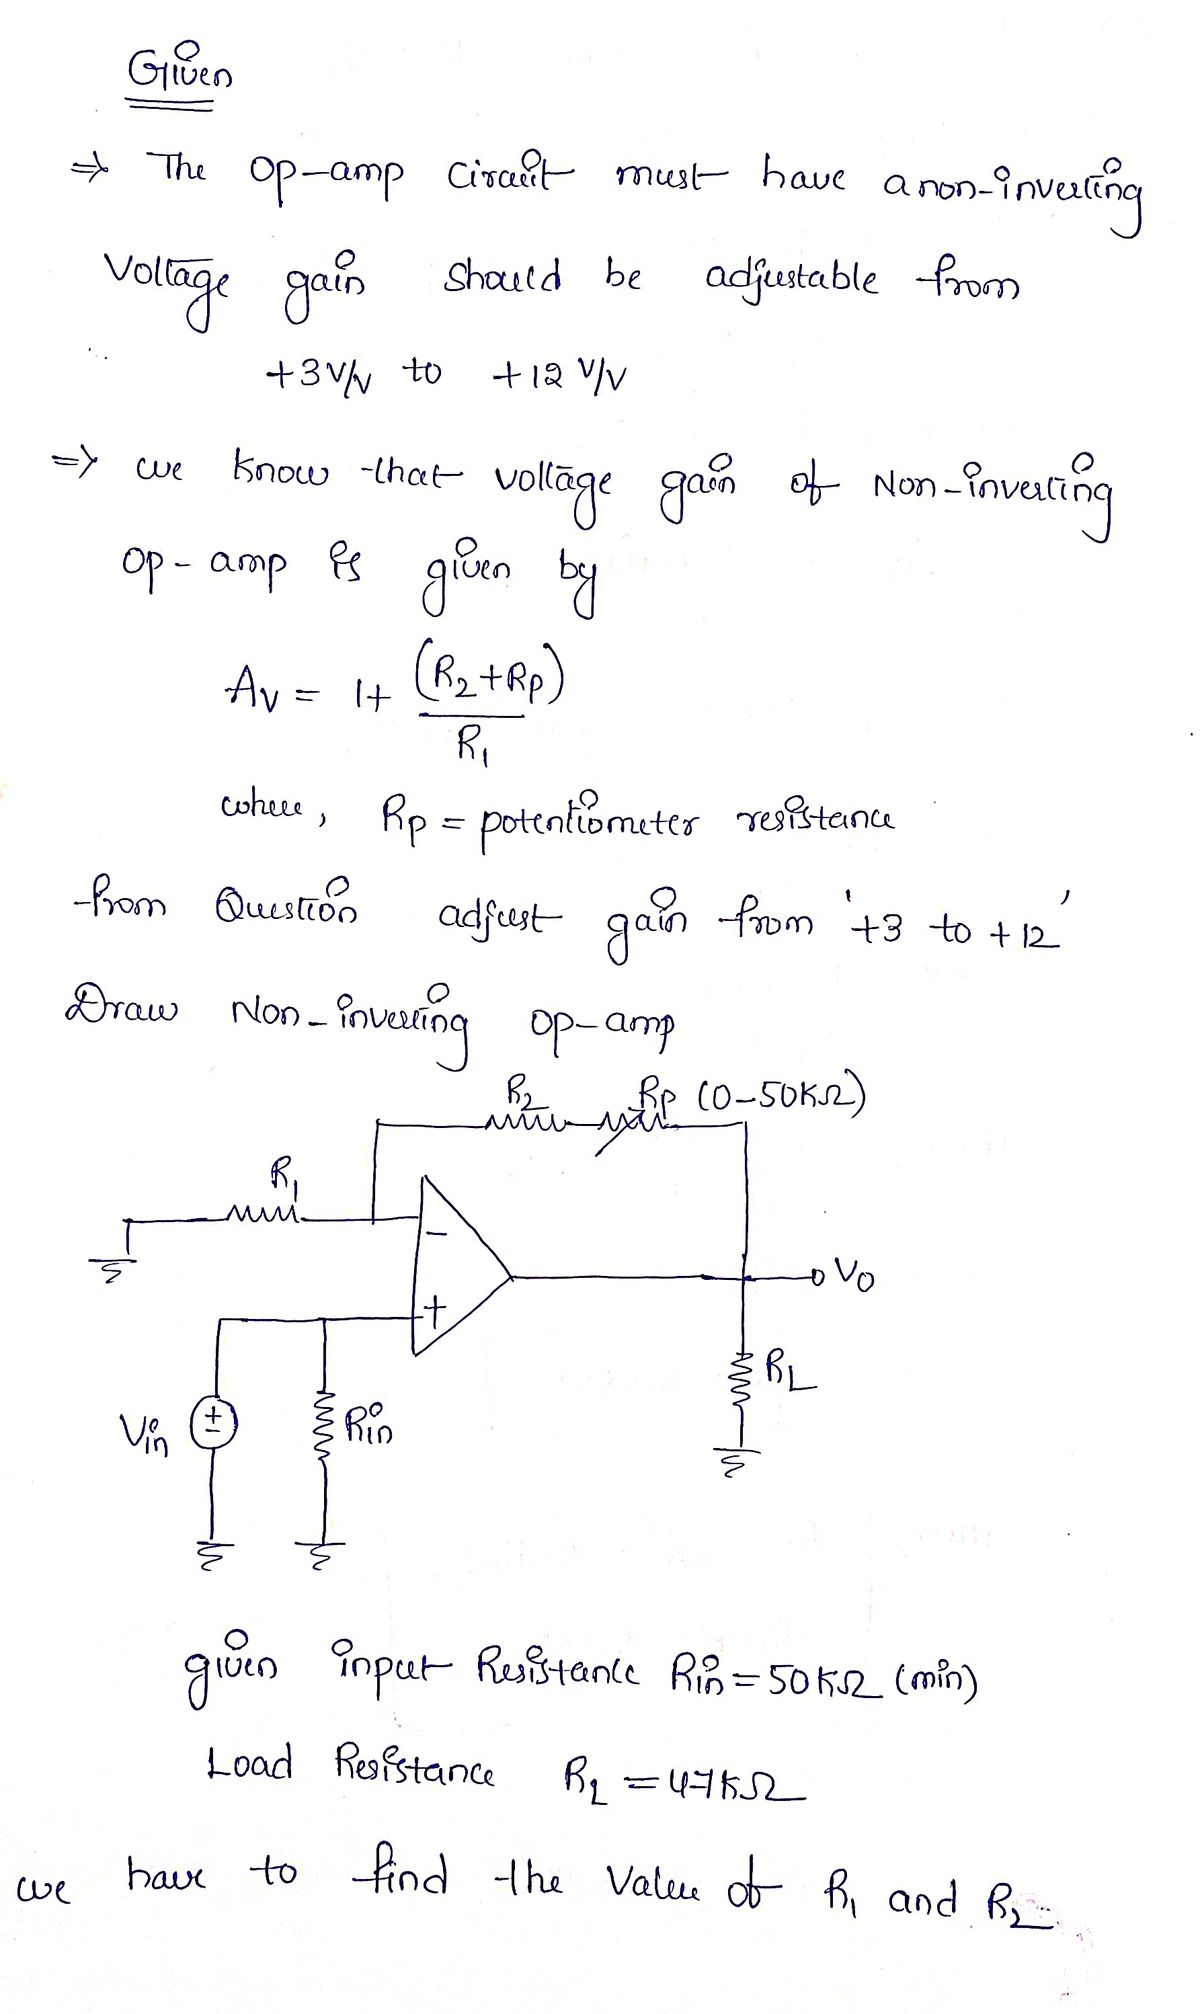 Given
⇒ The op-amp circuit must have a non-inverting
voltage gain should be adjustable from
+3 V/V to +12 V/V
⇒ we know that voltage gain of Non-inverting
op-amp is given by
Av = 1+ (R2+Rp)
R1
where, Rp = potentiometer resistance
from Question adjust gain from '+3 to +12'
Draw Non-inverting op-amp
R2 Rp (0-50KΩ)
R1
−
+
Vo
RL
Vin
±
Rin
given input Resistance Rin = 50KΩ (min)
Load Resistance RL = 47KΩ
we have to find the Value of R1 and R2